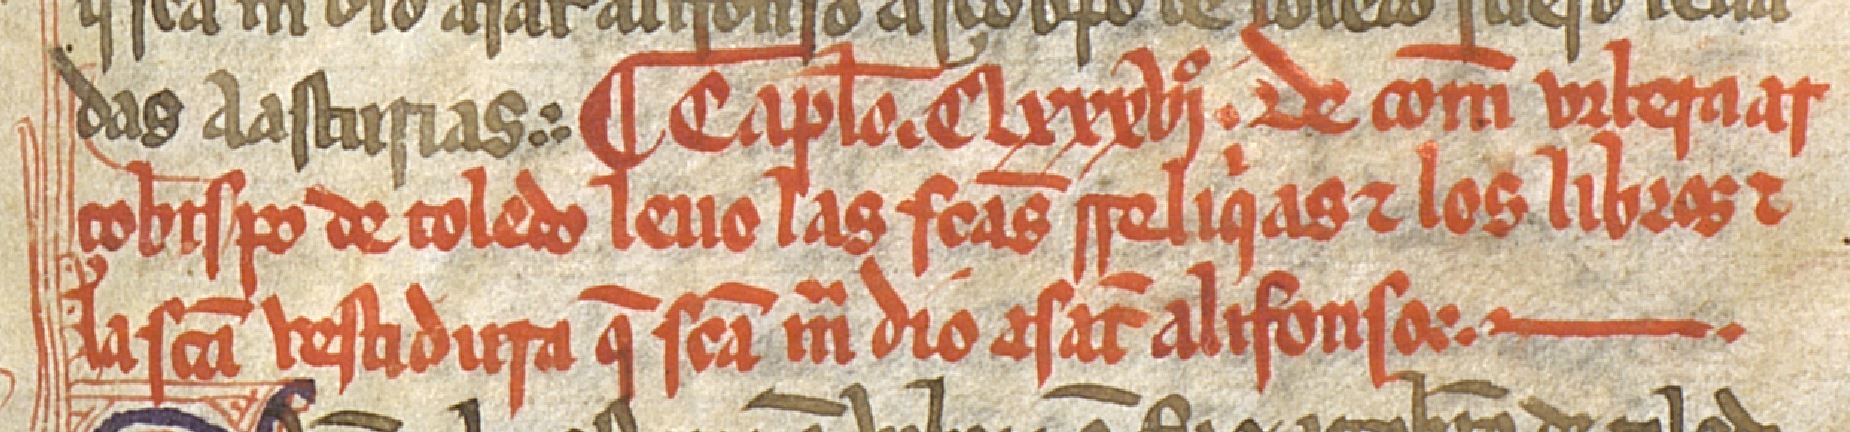 q̃ sc̃a mª dio a sat̃ alifonso arçobpo de toledo fuero leua
das a asturias:: ¶ Capl̃o. Clxxxvjº. de com̃ vrbera ar
çobispo de toledo leuo las sc̃as rreliq̃as ⁊ los libros ⁊
la sc̃a vestidura q̃ sc̃a mª dio a sat̃ alifonso:.